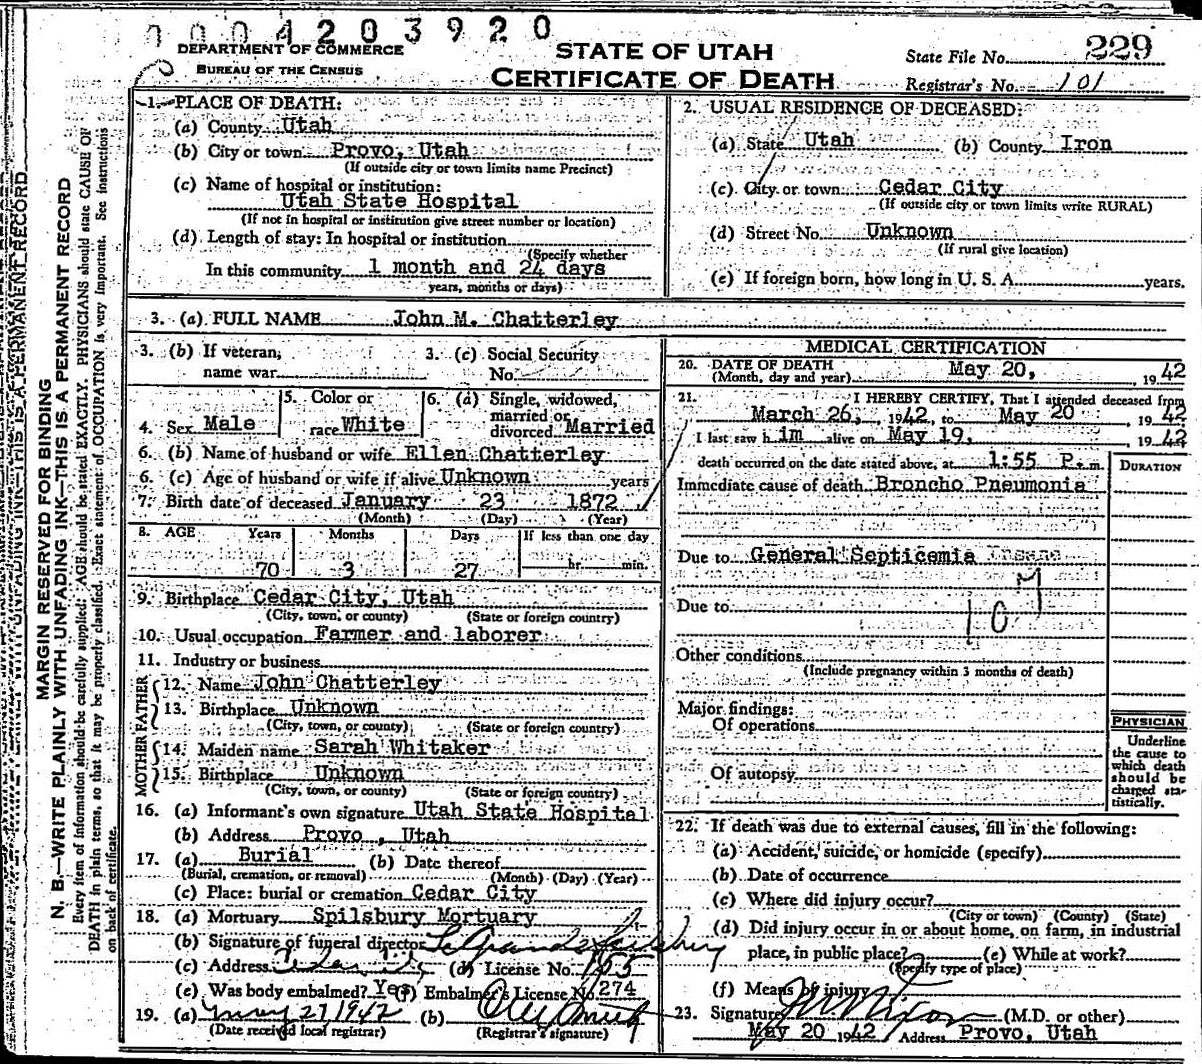 0004203920
DEPARTMENT OF COMMERCE
BUREAU OF THE CENSUS
STATE OF UTAH
CERTIFICATE OF DEATH
State File No. 229
Registrar's No. 101
MARGIN RESERVED FOR BINDING
N. B.—WRITE PLAINLY WITH UNFADING INK—THIS IS A PERMANENT RECORD
Every item of information should be carefully supplied. AGE should be stated EXACTLY. PHYSICIANS should state CAUSE OF
DEATH in plain terms, so that it may be properly classified. Exact statement of OCCUPATION is very important. See instructions
on back of certificate.
1. PLACE OF DEATH:
(a) County Utah
(b) City or town Provo, Utah
(If outside city or town limits name Precinct)
(c) Name of hospital or institution:
Utah State Hospital
(If not in hospital or institution give street number or location)
(d) Length of stay: In hospital or institution
(Specify whether
In this community 1 month and 24 days
years, months or days)
2. USUAL RESIDENCE OF DECEASED:
(a) State Utah (b) County Iron
(c) City or town Cedar City
(If outside city or town limits write RURAL)
(d) Street No. Unknown
(If rural give location)
(e) If foreign born, how long in U. S. A. years.
3. (a) FULL NAME John M. Chatterley
3. (b) If veteran, name war
3. (c) Social Security No.
4. Sex Male
5. Color or race White
6. (a) Single, widowed, married or divorced Married
6. (b) Name of husband or wife Ellen Chatterley
6. (c) Age of husband or wife if alive Unknown years
7. Birth date of deceased January 23 1872
(Month) (Day) (Year)
8. AGE Years Months Days If less than one day
70 3 27 hr. min.
9. Birthplace Cedar City, Utah
(City, town, or county) (State or foreign country)
10. Usual occupation Farmer and laborer
11. Industry or business
FATHER
12. Name John Chatterley
13. Birthplace Unknown
(City, town, or county) (State or foreign country)
MOTHER
14. Maiden name Sarah Whitaker
15. Birthplace Unknown
(City, town, or county) (State or foreign country)
16. (a) Informant's own signature Utah State Hospital
(b) Address Provo, Utah
17. (a) Burial (b) Date thereof
(Burial, cremation, or removal) (Month) (Day) (Year)
(c) Place: burial or cremation Cedar City
18. (a) Mortuary Spilsbury Mortuary
(b) Signature of funeral director
(c) Address Cedar City (d) License No. 155
(e) Was body embalmed? Yes (f) Embalmer's License No. 274
19. (a) May 27 1942 (b)
(Date received local registrar) (Registrar's signature)
MEDICAL CERTIFICATION
20. DATE OF DEATH
(Month, day and year) May 20, 1942
21. I HEREBY CERTIFY, That I attended deceased from
March 26, 1942, to May 20 1942
I last saw him alive on May 19, 1942
death occurred on the date stated above, at 1:55 P.m.
DURATION
Immediate cause of death Broncho Pneumonia
Due to General Septicemia Insane
107
Due to
Other conditions
(Include pregnancy within 3 months of death)
Major findings:
Of operations
Of autopsy
PHYSICIAN
Underline
the cause to
which death
should be
charged sta-
tistically.
22. If death was due to external causes, fill in the following:
(a) Accident, suicide, or homicide (specify)
(b) Date of occurrence
(c) Where did injury occur?
(City or town) (County) (State)
(d) Did injury occur in or about home, on farm, in industrial
place, in public place? (e) While at work?
(Specify type of place)
(f) Means of injury
23. Signature (M.D. or other)
May 20 1942 Address Provo, Utah